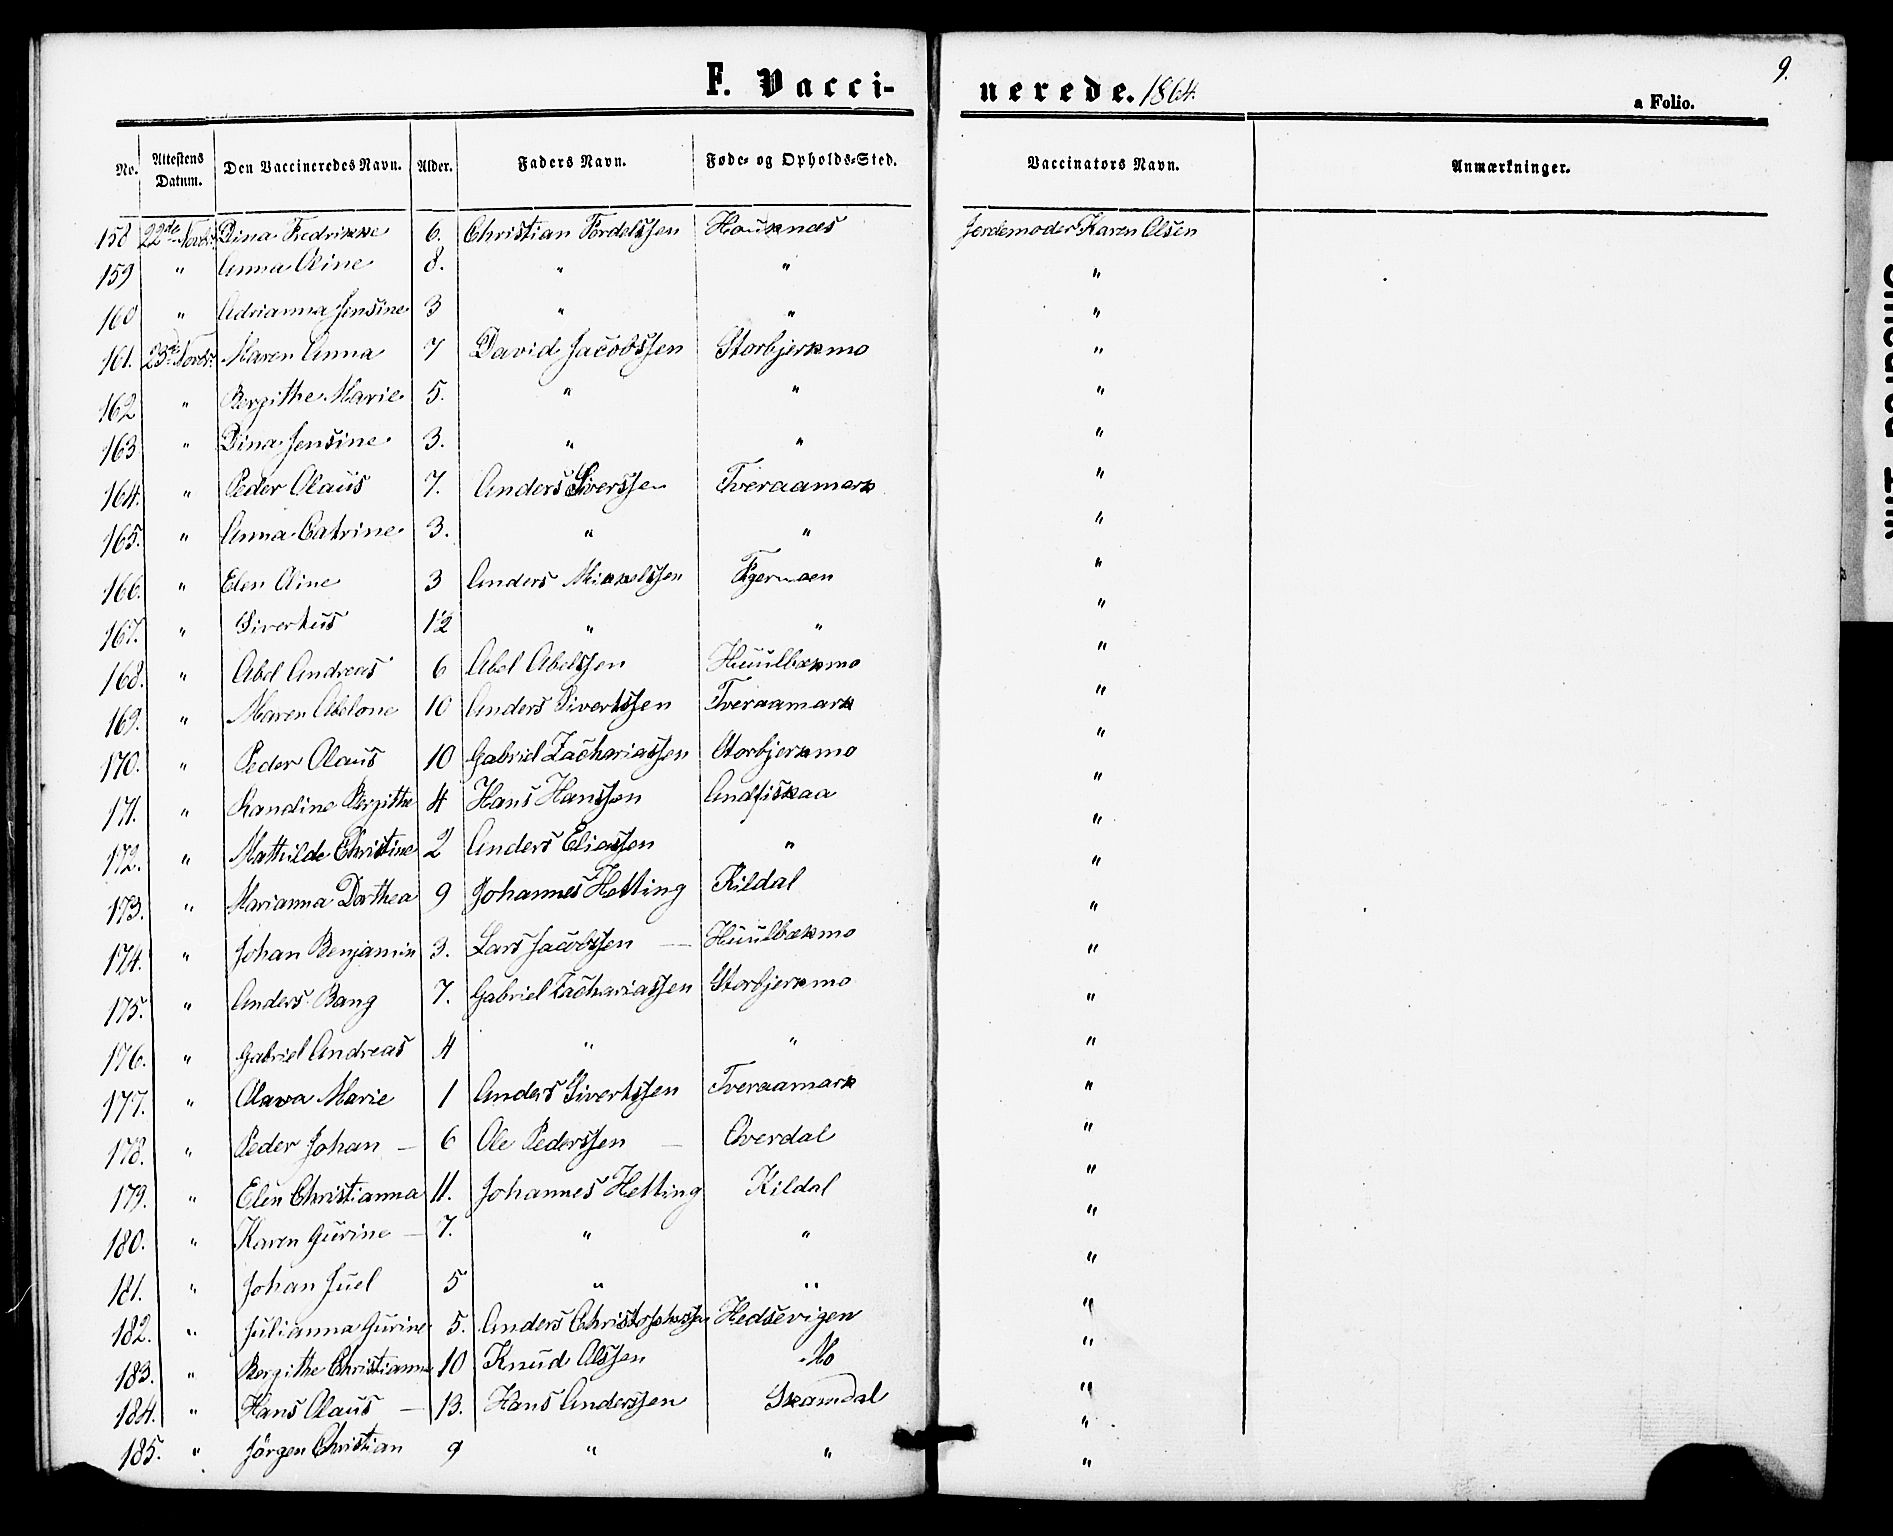 F. Vaccinerede. 1864.
a Folio. 9.
No. Attestens Datum. Den Vaccineredes Navn. Alder. Faders Navn. Føde- og Opholds-Sted. Vaccinators Navn. Anmærkninger.
158 22de Novbr. Dina Fredrikke 6. Christian Fordelssen Hauknæs Jordemoder Karen Olsen
159 " Anna Oline 8. " " "
160 " Adrianna Jensine 3 " " "
161. 23de Novbr. Maren Anna 7 David Jacobssen Storbjerkmo "
162 " Bergithe Marie 5. " " "
163 " Dina Jensine 3. " " "
164. " Peder Olaus 7. Anders Siverssen Tveraamark "
165. " Anna Catrine 3. " " "
166. " Elen Oline 3 Anders Mikkelssen "
167. " Sivertus 12 " " "
168. " Abel Andreas 6 Abel Abelssen Huulbækmo "
169. " Maren Abelone 10 Anders Sivertssen Tveraamark "
170. " Peder Olaus 10 Gabriel Zachariassen Storbjerkmo "
171. " Handine Bergithe 4 Hans Hanssen Andfiskaa "
172. " Mathilde Christine 2 Anders Eliassen " "
173. " Marianna Dorthea 9 Johannes Hetting Kildal "
174. " Johan Benjamin 3. Lars Jacobssen — Huulbækmo "
175. " Anders Bang 7. Gabriel Zachariassen Storbjerkmo "
176. " Gabriel Andreas 4 " " "
177. " Olava Marie 1 Anders Sivertssen Tveraamark "
178. " Peder Johan — 6 Ole Pederssen — Overdal "
179. " Elen Christianna 11. Johannes Hetting Kildal "
180. " Karen Gurine — 7. " " "
181. " Johan Juel 5 " " "
182. " Julianna Gurine 5. Anders Christophersen Hedsevigen "
183. " Bergithe Christianne 10 Knud Olssen Mo "
184. " Hans Olaus — 13. Hans Anderssen Skamdal "
185. " Jörgen Christian 9 " " "